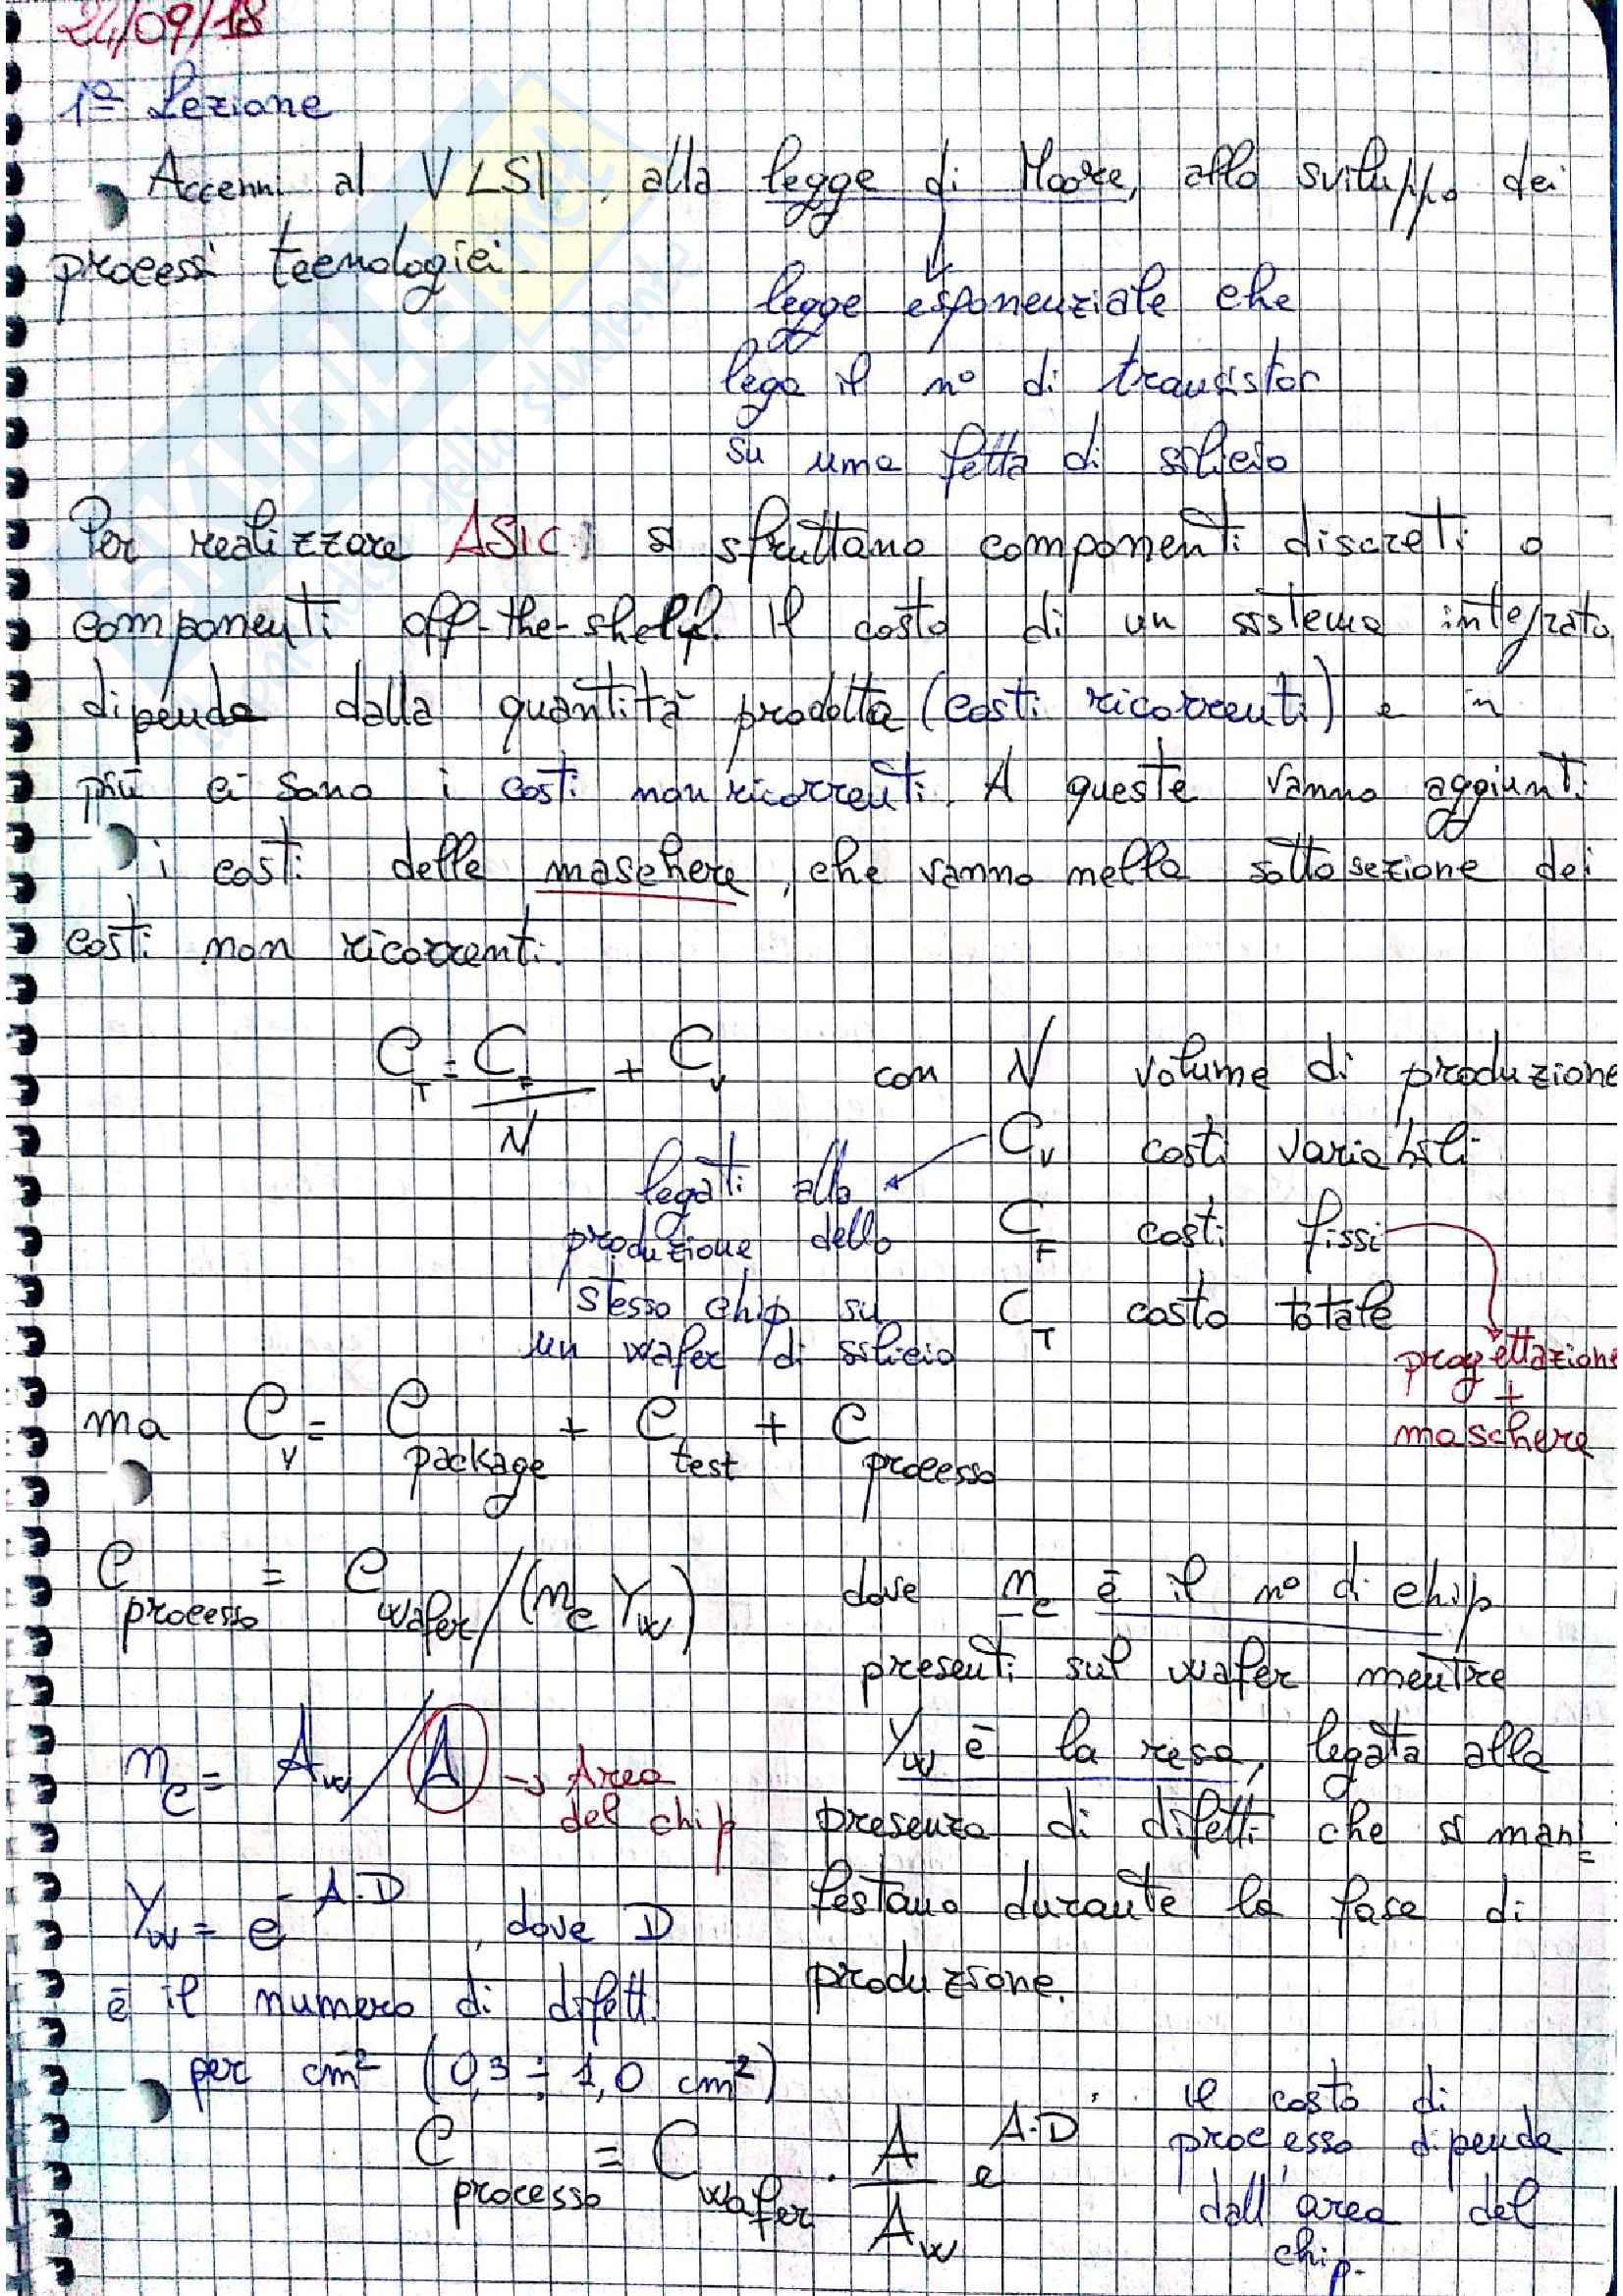 24/09/18
1ª Lezione
Accenni al VLSI, alla legge di Moore, allo sviluppo dei
processi tecnologici.
legge esponenziale che
lega il n° di transistor
su una fetta di silicio
Per realizzare ASIC si sfruttano componenti discreti o
componenti off-the-shelf. Il costo di un sistema integrato
dipende dalla quantità prodotta (costi ricorrenti) e in
più ci sono i costi non ricorrenti. A queste vanno aggiunti
i costi delle maschere, che vanno nella sottosezione dei
costi non ricorrenti.
C_T = C_F / N + C_V con N volume di produzione
C_V costi variabili
legati alla
produzione dello
stesso chip su
un wafer di silicio
C_F costi fissi
progettazione
+
maschere
C_T costo totale
ma C_V = C_package + C_test + C_processo
C_processo = C_wafer/(n_c Y_W) dove n_c è il n° di chip
presenti sul wafer mentre
Y_W è la resa, legata alla
presenza di difetti che si mani=
festano durante la fase di
produzione.
n_c = A_W/A → Area
del chip
Y_W = e^-A·D, dove D
è il numero di difetti
per cm² (0,3÷1,0 cm²)
C_processo = C_wafer · A/A_W e^A·D
il costo di
processo dipende
dall'area del
chip.
SKUOLA.net
dello studente